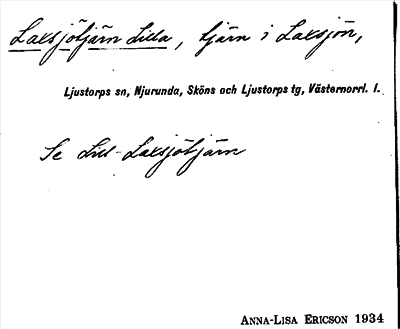 Laxsjötjärn Lilla, tjärn i Laxsjön,
Ljustorps sn, Njurunda, Sköns och Ljustorps tg, Västernorrl. l.
Se Lill-Laxsjötjärn
ANNA-LISA ERICSON 1934